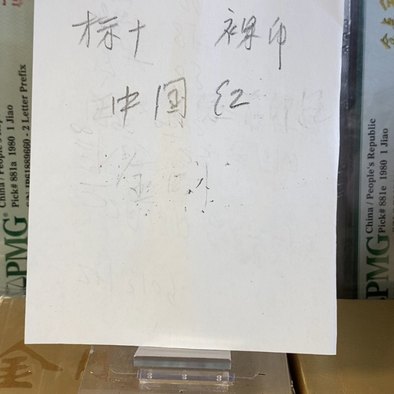 标十 裸印
中国红
PMG
China / People's Rep
Pick# 881a 1980 1 Jiao
- 2 Letter Prefix
PMG
China / People's Republic
Pick# 881e 1980 1 Jiao
金